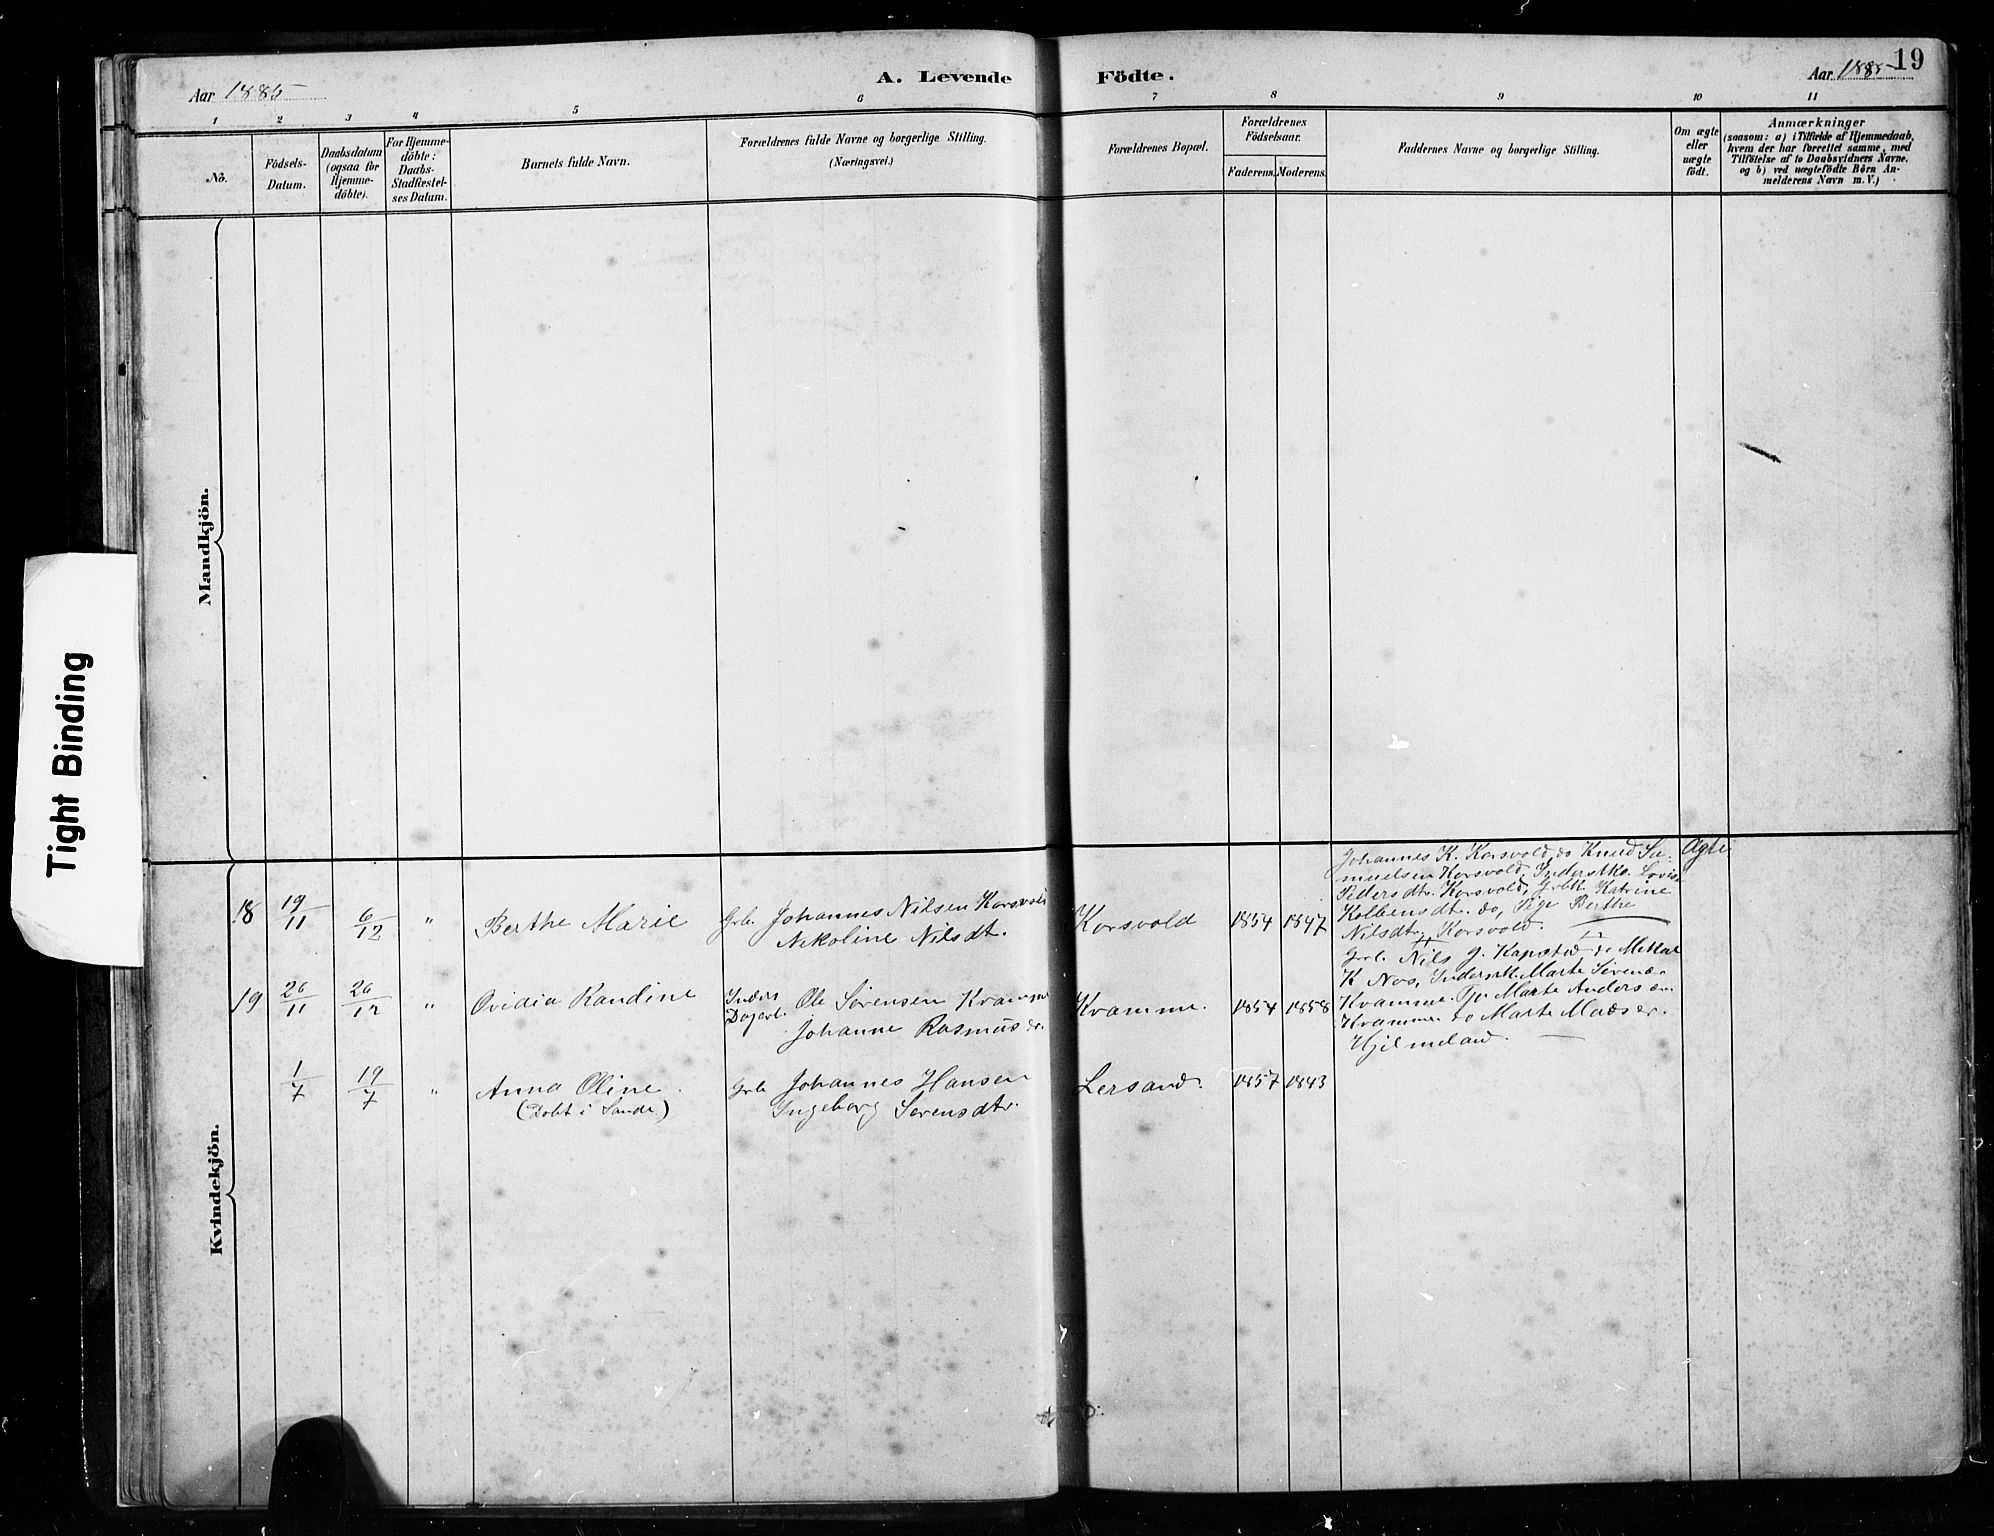 19
Aar 1885
A. Levende Födte.
Aar 1885
1 2 3 4 5 6 7 8 9 10 11
No.
Födsels-
Datum.
Daabsdatum
(ogsaa for
Hjemme-
döbte).
For Hjemme-
döbte:
Daabs-
Stadfæstel-
ses Datum.
Barnets fulde Navn.
Forældrenes fulde Navne og borgerlige Stilling.
(Næringsvei.)
Forældrenes Bopæl.
Forældrenes
Födselsaar.
Faderens. Moderens.
Faddernes Navne og borgerlige Stilling.
Om ægte
eller
uægte
födt.
Anmærkninger
(saasom: a) i Tilfælde af Hjemmedaab,
hvem der har forrettet samme, med
Tilföielse af to Daabsvidners Navne.
og b) ved uægtefödte Börn An-
melderens Navn m. V.)
Mandkjön.
Tight Binding
Kvindekjön.
18 19/11 6/12 " Berthe Marie Grb. Johannes Nilsen Korsvold
Nikoline Nilsdt.
Korsvold 1854 1847
Johannes K. Korsvold, do Knud Sa-
muelsen Korsvold, Inderstko. Lovise
Pedersdtr. Korsvold, Grbk. Katrine
Kolbensdt. do, Pige Berthe
Nilsdtr. Korsvold.
Ægte
19 26/11 26/12 " Ovidia Randine Inders Ole Sørensen Kramme
Dagarb. Johanne Rasmusdr.
Kvamme. 1854 1858
Grb. Nils J. Kapstad do
K Nos, Marte
Kvamme. Marte Anders
Kvamme do Marte Madser.
Hjelmeland.
1/7 19/7 " Anna Oline. Grb Johannes Hansen
(Døbt i Sande) Ingeborg Sørensdtr.
Lersand. 1857 1843